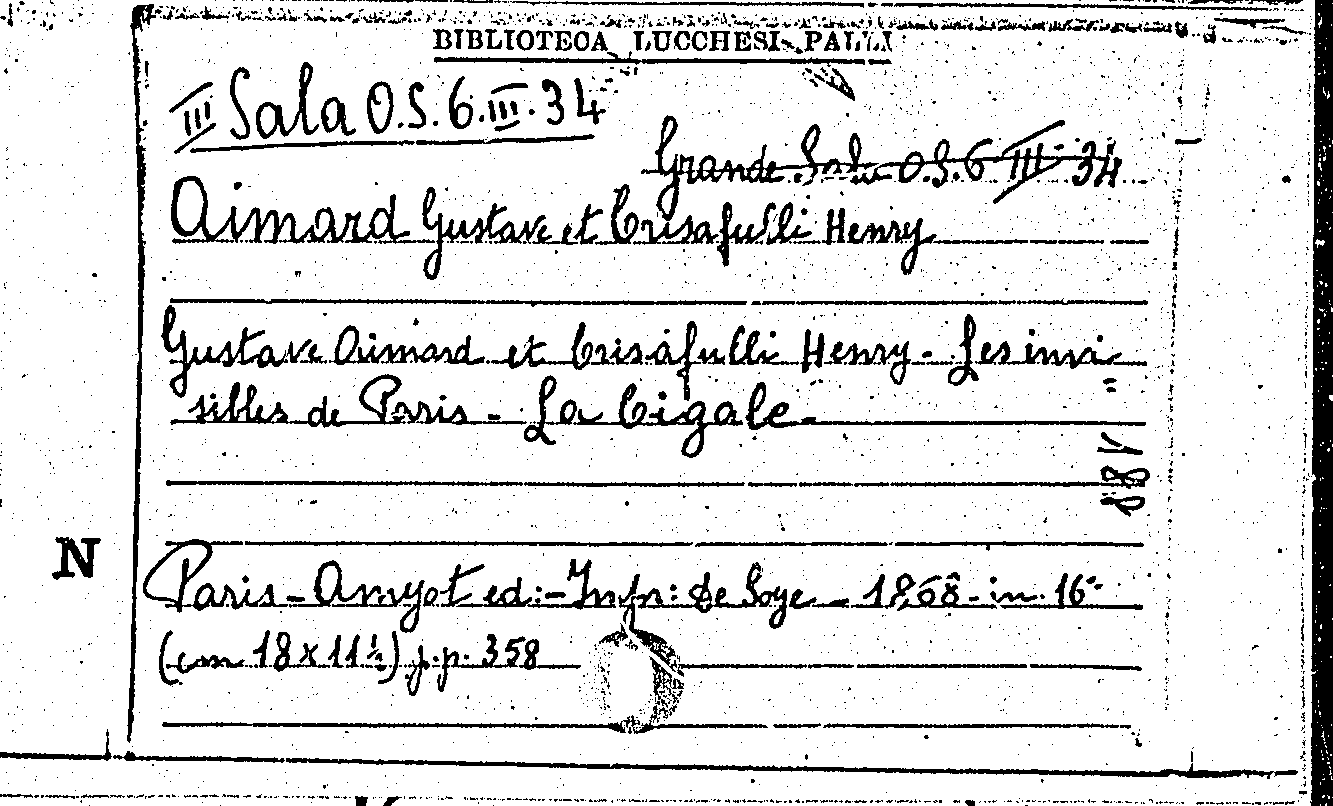 BIBLIOTECA LUCCHESI-PALLI
III Sala O.S.6.III.34
Grande Sala O.S.6 III 34
Aimard Gustave et Crisafulli Henry
Gustave Aimard et Crisafulli Henry - Les invi-
sibles de Paris - La Cigale -
188
N
Paris - Amyot ed: - Impr: De Soye - 1868 - in 16°
(cm 18 x 11 ½) p.p. 358